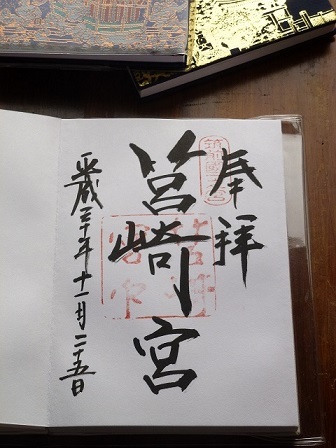 奉拝
筥崎宮
平成三十年十一月二十五日